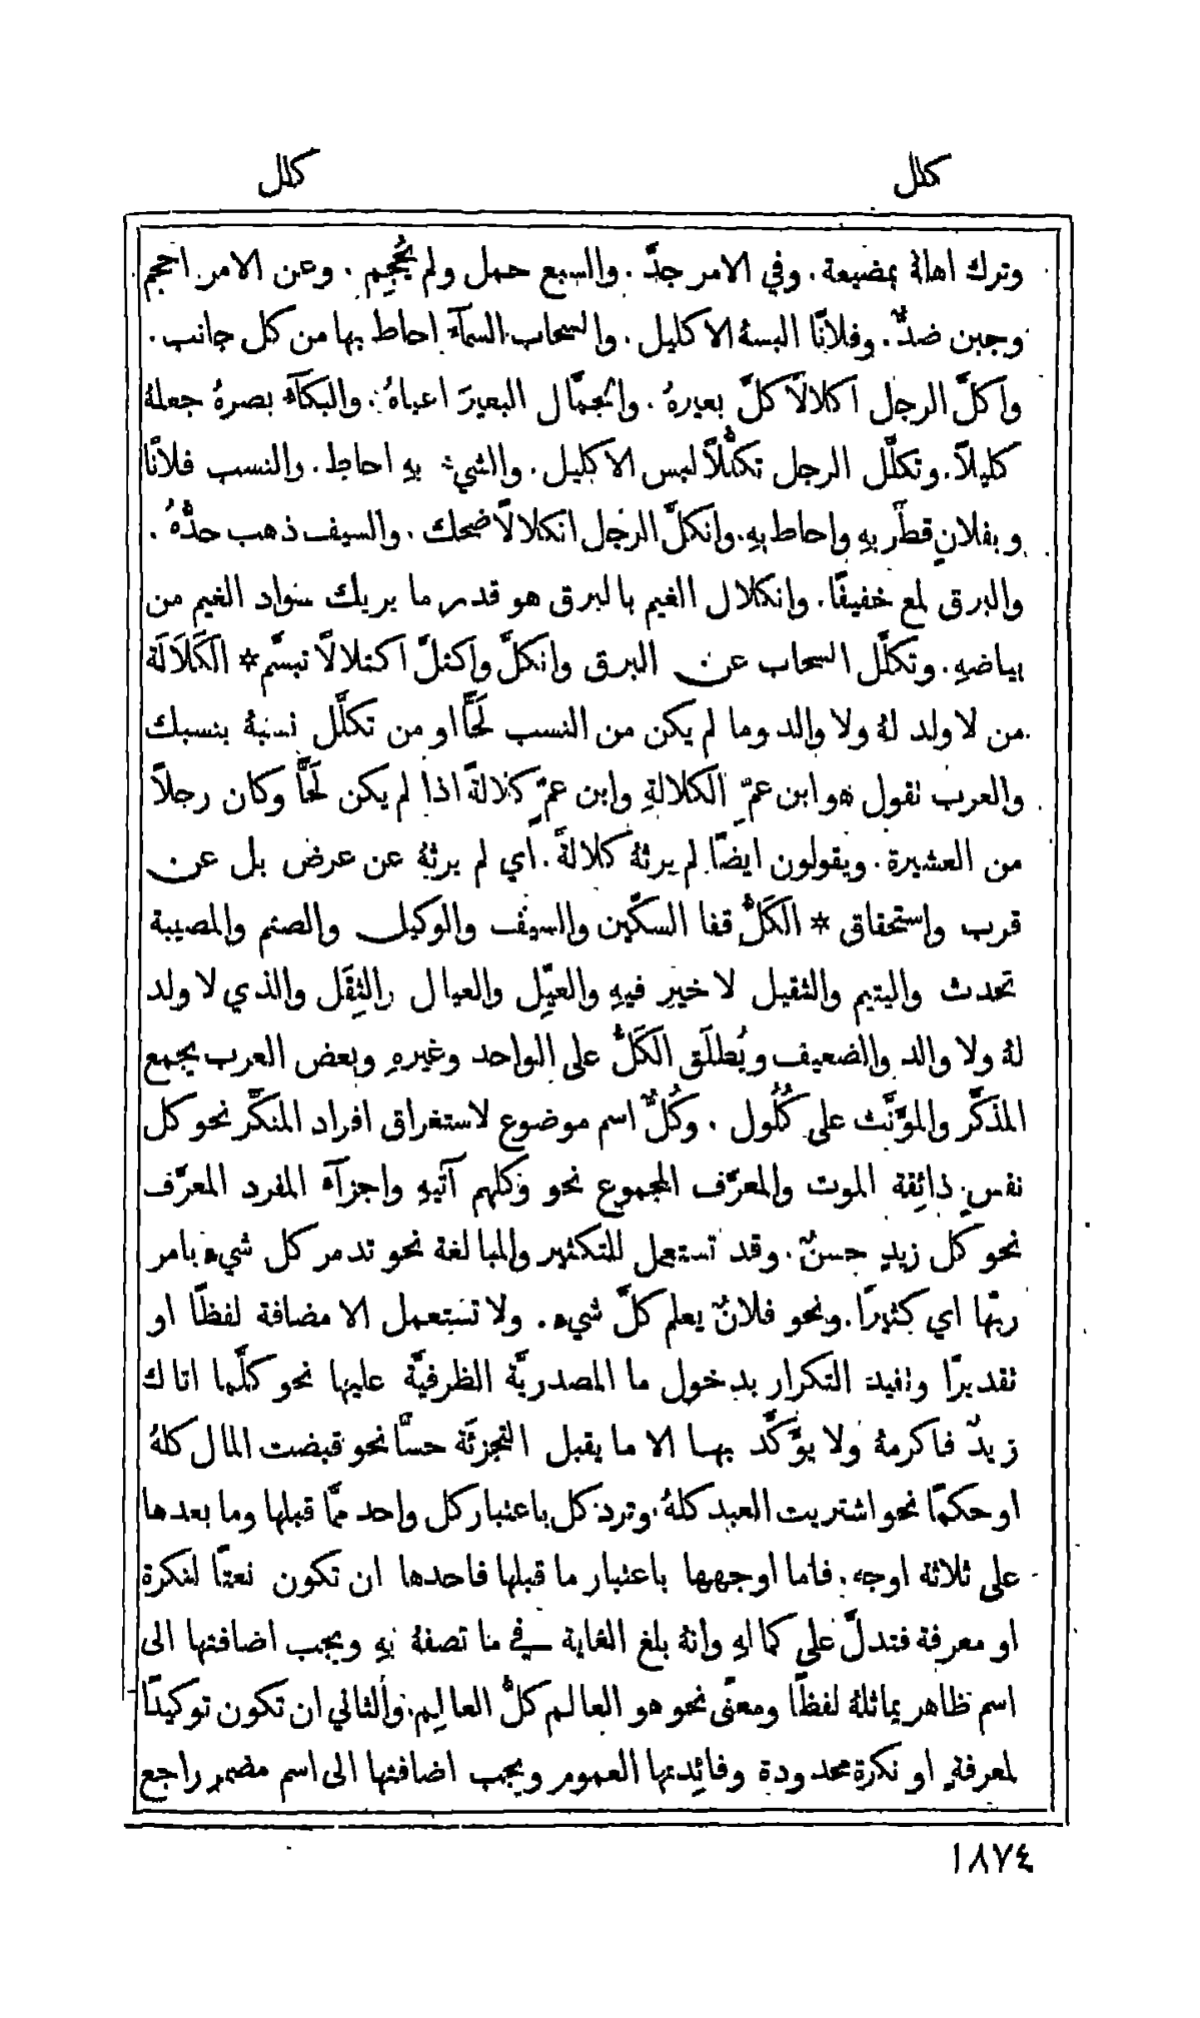 كلل كلل
وترك اهلهُ بمضيعة. وفي الامر جدَّ. والسبع حمل ولم يُحْجِم. وعن الامر احجم
وجبن ضدٌّ. وفلانًا البسهُ الاكليل. والسحاب السمآءَ احاط بها من كل جانب.
واكلَّ الرجل اكلالًا كلَّ بعيرهُ. والجمَّال البعيرَ اعياهُ. والبكآءُ بصرهُ جعلهُ
كليلًا. وتكلَّل الرجل تكلُّلًا لبس الاكليل. والشيءُ بهِ احاط. والنسب فلانًا
وبفلانٍ قطَّر بهِ واحاط بهِ. وانكلَّ الرجل انكلالًا ضحك. والسيف ذهب حدُّهُ.
والبرق لمع خفيفًا. وانكلال الغيم بالبرق هو قدر ما يريك سواد الغيم من
بياضهِ. وتكلَّل السحاب عن البرق وانكلَّ واكتلَّ اكتلالًا تبسَّم * الكَلَالَة
من لا ولد لهُ ولا والد وما لم يكن من النسب لَحًّا او من تكلَّل نسبهُ بنسبك
والعرب تقول هو ابن عمِّ الكلالةِ وابن عمٍّ كلالةً اذا لم يكن لَحًّا وكان رجلًا
من العشيرة. ويقولون ايضًا لم يرثهُ كلالةً. اي لم يرثهُ عن عرض بل عن
قرب واستحقاق * الكَلُّ قفا السكّين والسيف والوكيل والصنم والمصيبة
تحدث واليتيم والثقيل لا خير فيهِ والعيِّل والعيال والثِقَل والذي لا ولد
لهُ ولا والد والضعيف ويُطلَق الكَلُّ على الواحد وغيرهِ وبعض العرب يجمع
المذكَّر والمؤنَّث على كُلُول. وكُلٌّ اسم موضوع لاستغراق افراد المنكَّر نحو كل
نفسٍ ذائِقة الموت والمعرَّف المجموع نحو وكلهم آتيهِ واجزآء المفرد المعرَّف
نحو كل زيدٍ حسنٌ. وقد تستعمل للتكثير والمبالغة نحو تدمر كل شيء بامر
ربّها اي كثيرًا. ونحو فلانٌ يعلم كلَّ شيء. ولا تستعمل الا مضافة لفظًا او
تقديرًا وتفيد التكرار بدخول ما المصدريَّة الظرفيَّة عليها نحو كلَّما اتاك
زيدٌ فاكرمهُ ولا يؤَكَّد بها الا ما يقبل التجزئَة حسًّا نحو قبضت المال كلهُ
او حكمًا نحو اشتريت العبد كلهُ. وترد كل باعتبار كل واحد ممَّا قبلها وما بعدها
على ثلاثة اوجه. فاما اوجهها باعتبار ما قبلها فاحدها ان تكون نعتًا لنكرة
او معرفة فتدلَّ على كمالهِ وانهُ بلغ الغاية في ما تصفهُ بهِ ويجب اضافتها الى
اسم ظاهر يماثلهُ لفظًا ومعنًى نحو هو العالم كلُّ العالِم. والثاني ان تكون توكيدًا
لمعرفةٍ او نكرة محدودة وفائِدتها العموم ويجب اضافتها الى اسم مضمر راجع
١٨٧٤